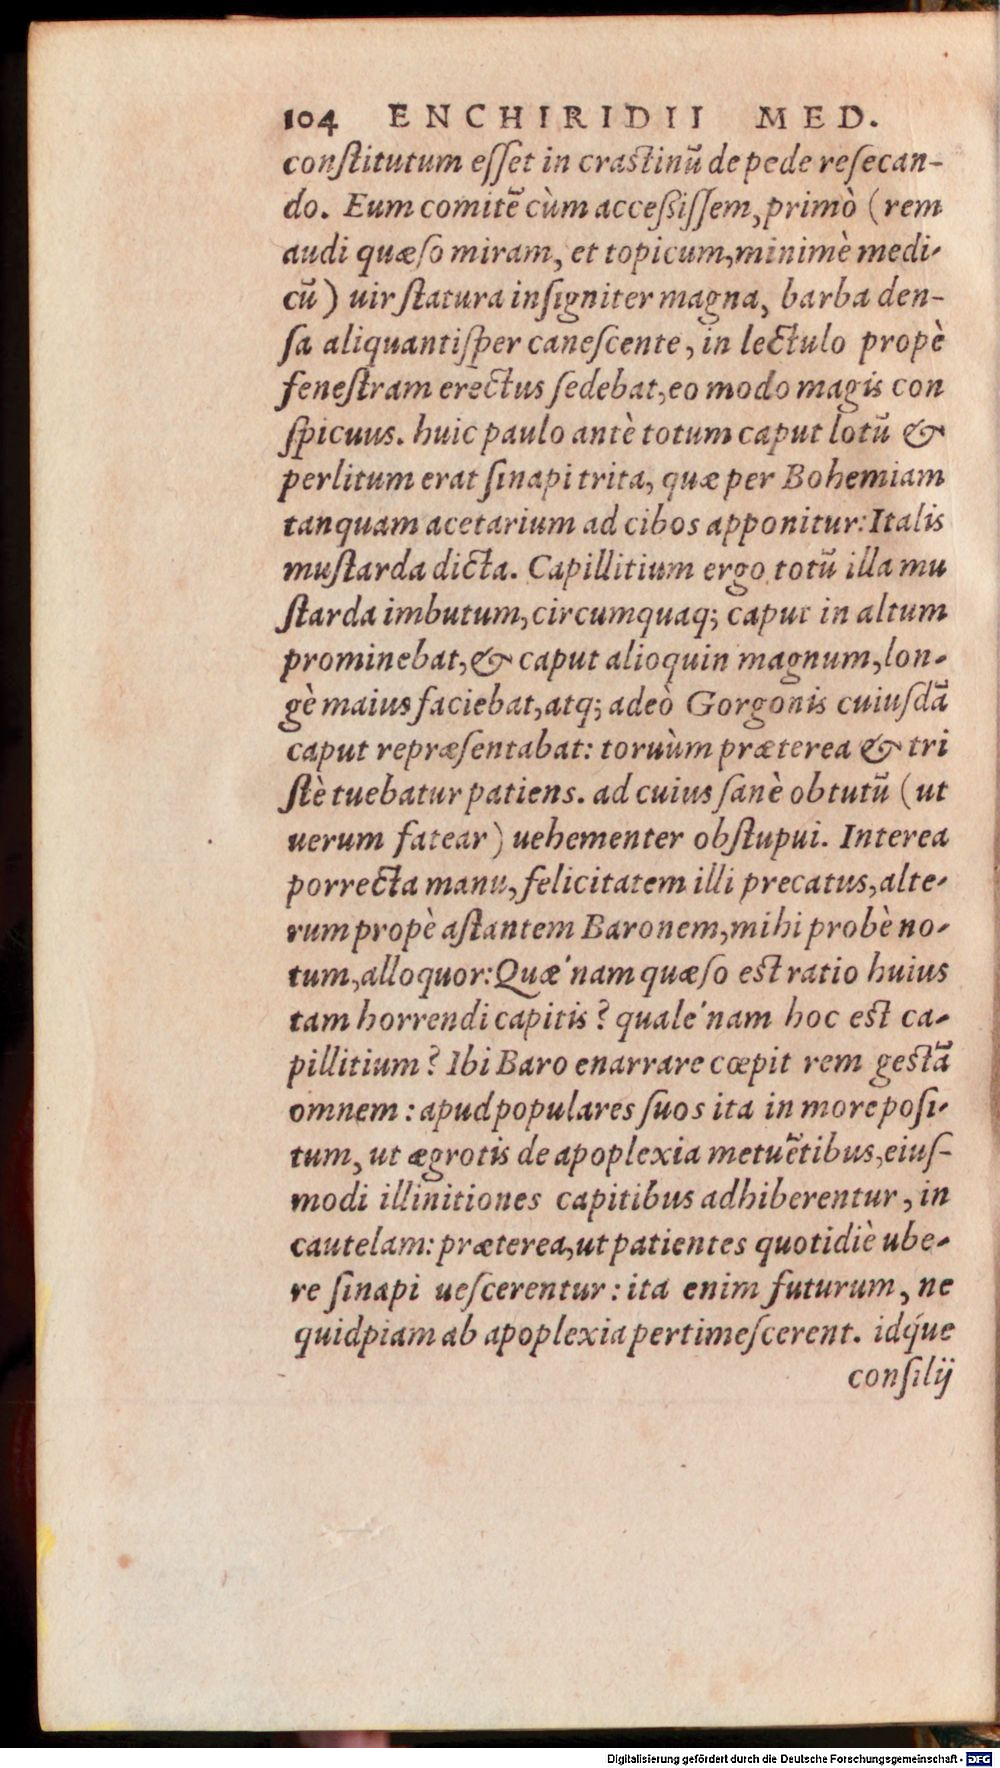 104 ENCHIRIDII MED.
conſtitutum eſſet in craſtinū de pede reſecan-
do. Eum comitē cùm acceſsiſſem, primò (rem
audi quæſo miram, et topicum, minimè medi-
cū) uir ſtatura inſigniter magna, barba den-
ſa aliquantiſper caneſcente, in lectulo propè
feneſtram erectus ſedebat, eo modo magis con
ſpicuus. huic paulo antè totum caput lotū &
perlitum erat ſinapi trita, quæ per Bohemiam
tanquam acetarium ad cibos apponitur: Italis
muſtarda dicta. Capillitium ergo totū illa mu
ſtarda imbutum, circumquaq; caput in altum
prominebat, & caput alioquin magnum, lon-
gè maius faciebat, atq; adeò Gorgonis cuiuſdā
caput repræſentabat: toruùm præterea & tri
ſtè tuebatur patiens. ad cuius ſanè obtutū (ut
uerum fatear) uehementer obſtupui. Interea
porrecta manu, felicitatem illi precatus, alte-
rum propè aſtantem Baronem, mihi probè no-
tum, alloquor: Quæ'nam quæſo eſt ratio huius
tam horrendi capitis? quale'nam hoc eſt ca-
pillitium? Ibi Baro enarrare cœpit rem geſtā
omnem: apud populares ſuos ita in more poſi-
tum, ut ægrotis de apoplexia metuētibus, eiuſ-
modi illinitiones capitibus adhiberentur, in
cautelam: præterea, ut patientes quotidiè ube-
re ſinapi ueſcerentur: ita enim futurum, ne
quidpiam ab apoplexia pertimeſcerent. idq́ue
conſilij
Digitalisierung gefördert durch die Deutsche Forschungsgemeinschaft - DFG